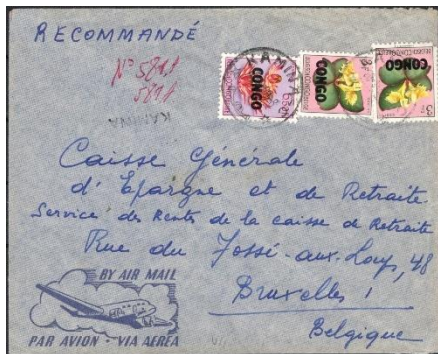 RECOMMANDÉ
N° 5811
5811
KAMINA
KAMINA
CONGO
CONGO
CONGO
Caisse Générale
d'Epargne et de Retraite
Service des Rentes de la caisse de Retraite
Rue du Fossé-aux-Loups, 48
Bruxelles 1
Belgique
BY AIR MAIL
PAR AVION · VIA AEREA